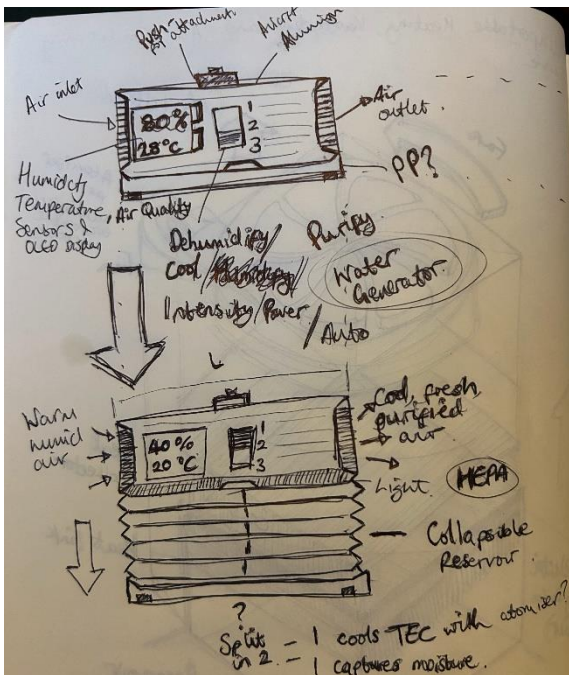 Push-
attachment
Aircraft
Aluminium
Air inlet
80%
28°C
1
2
3
Air
outlet.
PP?
Humidity
Temperature, Air Quality
Sensors &
OLED Display
Dehumidify/ Purify
Cool/
Water
Generator.
Intensity/Power
/Auto
L
Warm
humid
air
40%
20°C
1
2
3
Cool, fresh,
purified
air
Light.
HEPA
Collapsible
Reservoir.
?
Split - 1 cools TEC with atomiser?
in 2. - 1 captures moisture.